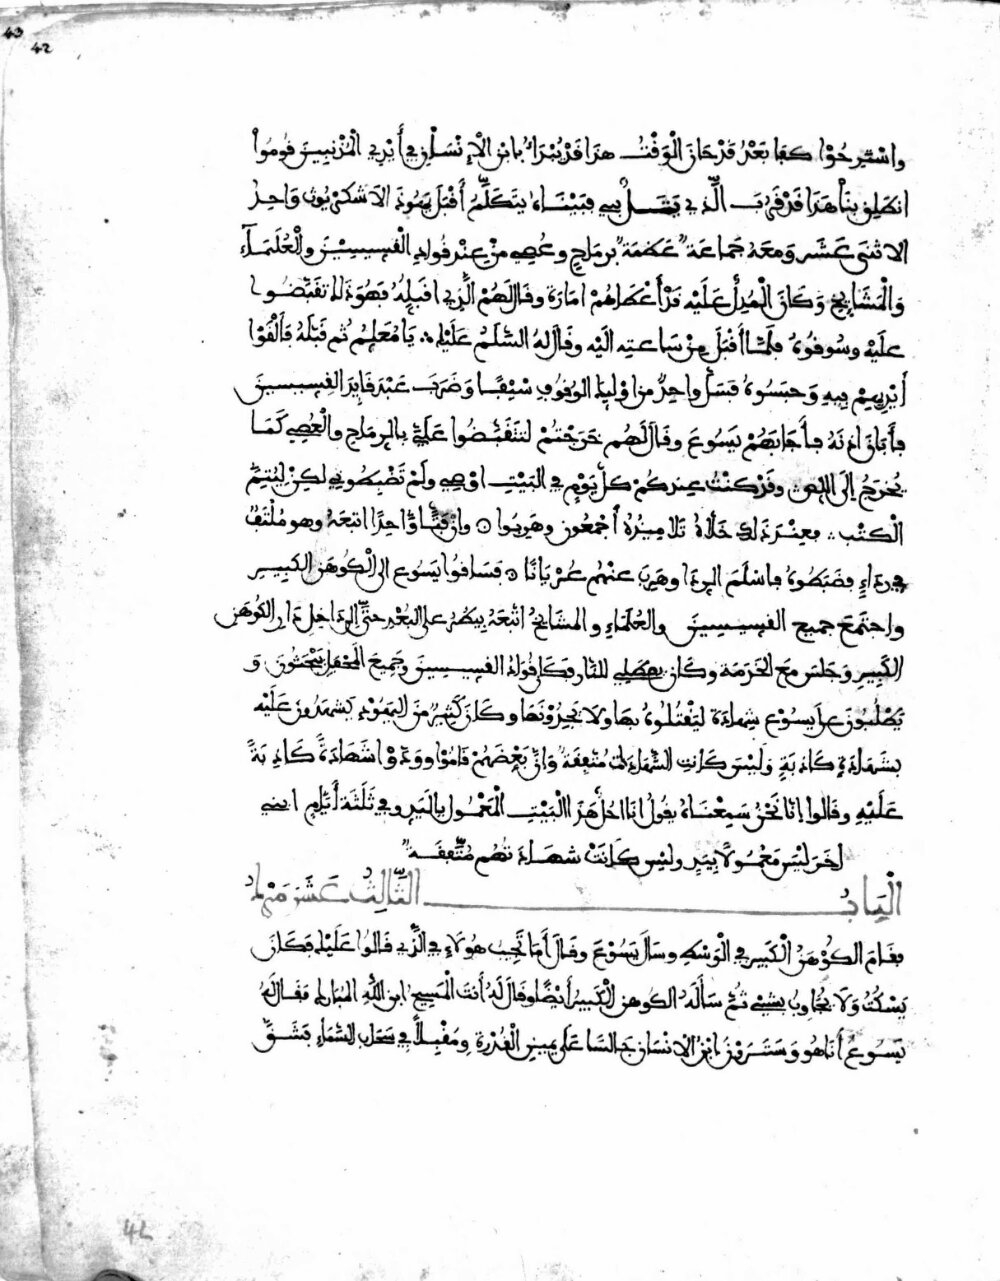 43
42
واستريحوا كفا بعد قد حان الوقت هذا قد يبرا بابن الإنسان في أيدي المذنبين قوموا
انطلق بنا هذا قد قرب الذي يسل بي فبيناه يتكلم أقبل يهوذ الاشكريوث واحد
الاثنى عشر ومعه جماعة عظمة برماح وعصي من عند قواد القسيسين والعلماء
والمشايخ وكان المدل عليه قد أعطاهم امارة وقال لهم الذي اقبله فهو ذلك تقبضوا
عليه وسوقوه فلما أقبل من ساعته اليه وقال له السلم عليك يا معلم ثم قبله فألقوا
أيديهم فيه وحبسوه فسل واحد من اوليك الوقوف سيفا وضرب عبد قايد القسيسين
فأبان اذنه فأجابهم يسوع وقال لهم خرجتم لتتقبضوا علي بالرماح والعصي كما
يخرج إلى اللص وقد كنت عندكم كل يوم في البيت اوصي ولم تضبطوني لكن لتتم
الكتب فعند ذلك خلاه تلاميذه أجمعون وهربوا وان فتا واحدا اتبعه وهو ملتف
في رداء فضبطوه فاسلم الردا وهرب عنهم عريانا فساقوا يسوع الى الكوهن الكبير
واجتمع جميع القسيسين والعلماء والمشايخ اتبعه بيطر على البعد حتى الى داخل دار الكوهن
الكبير وجلس مع الخدمة وكان يصطلي للنار فكان قواد القسيسين وجميع المحفل يبحثون و
يطلبون على يسوع شهادة ليقتلوه بها ولا يجدونها وكان كثير من اليهود يشهدون عليه
بشهادة كاذبة وليس كانت الشهادات متفقة وان بعضهم قاموا وودوا شهادة كاذبة
عليه وقالوا إنا نحن سمعناه يقول انا احل هذا البيت المعمول باليد وفي ثلثة أيام ابني
اخر ليس معمولا بيد وليس كانت شهاداتهم متفقة
الباب الثالث عشر منه
فقام الكوهن الكبير في الوسط وسال يسوع وقال أما تجب هولاء في الذي قالوا عليك فكان
يسكت ولا يجاوب بشيء ثم سأله الكوهن الكبير أيضا وقال له أنت المسيح ابن الله المبارك فقال له
يسوع أنا هو وسترون ابن الانسان جالسا على يمين القدرة ومقبلا في سحاب السماء فشق
42